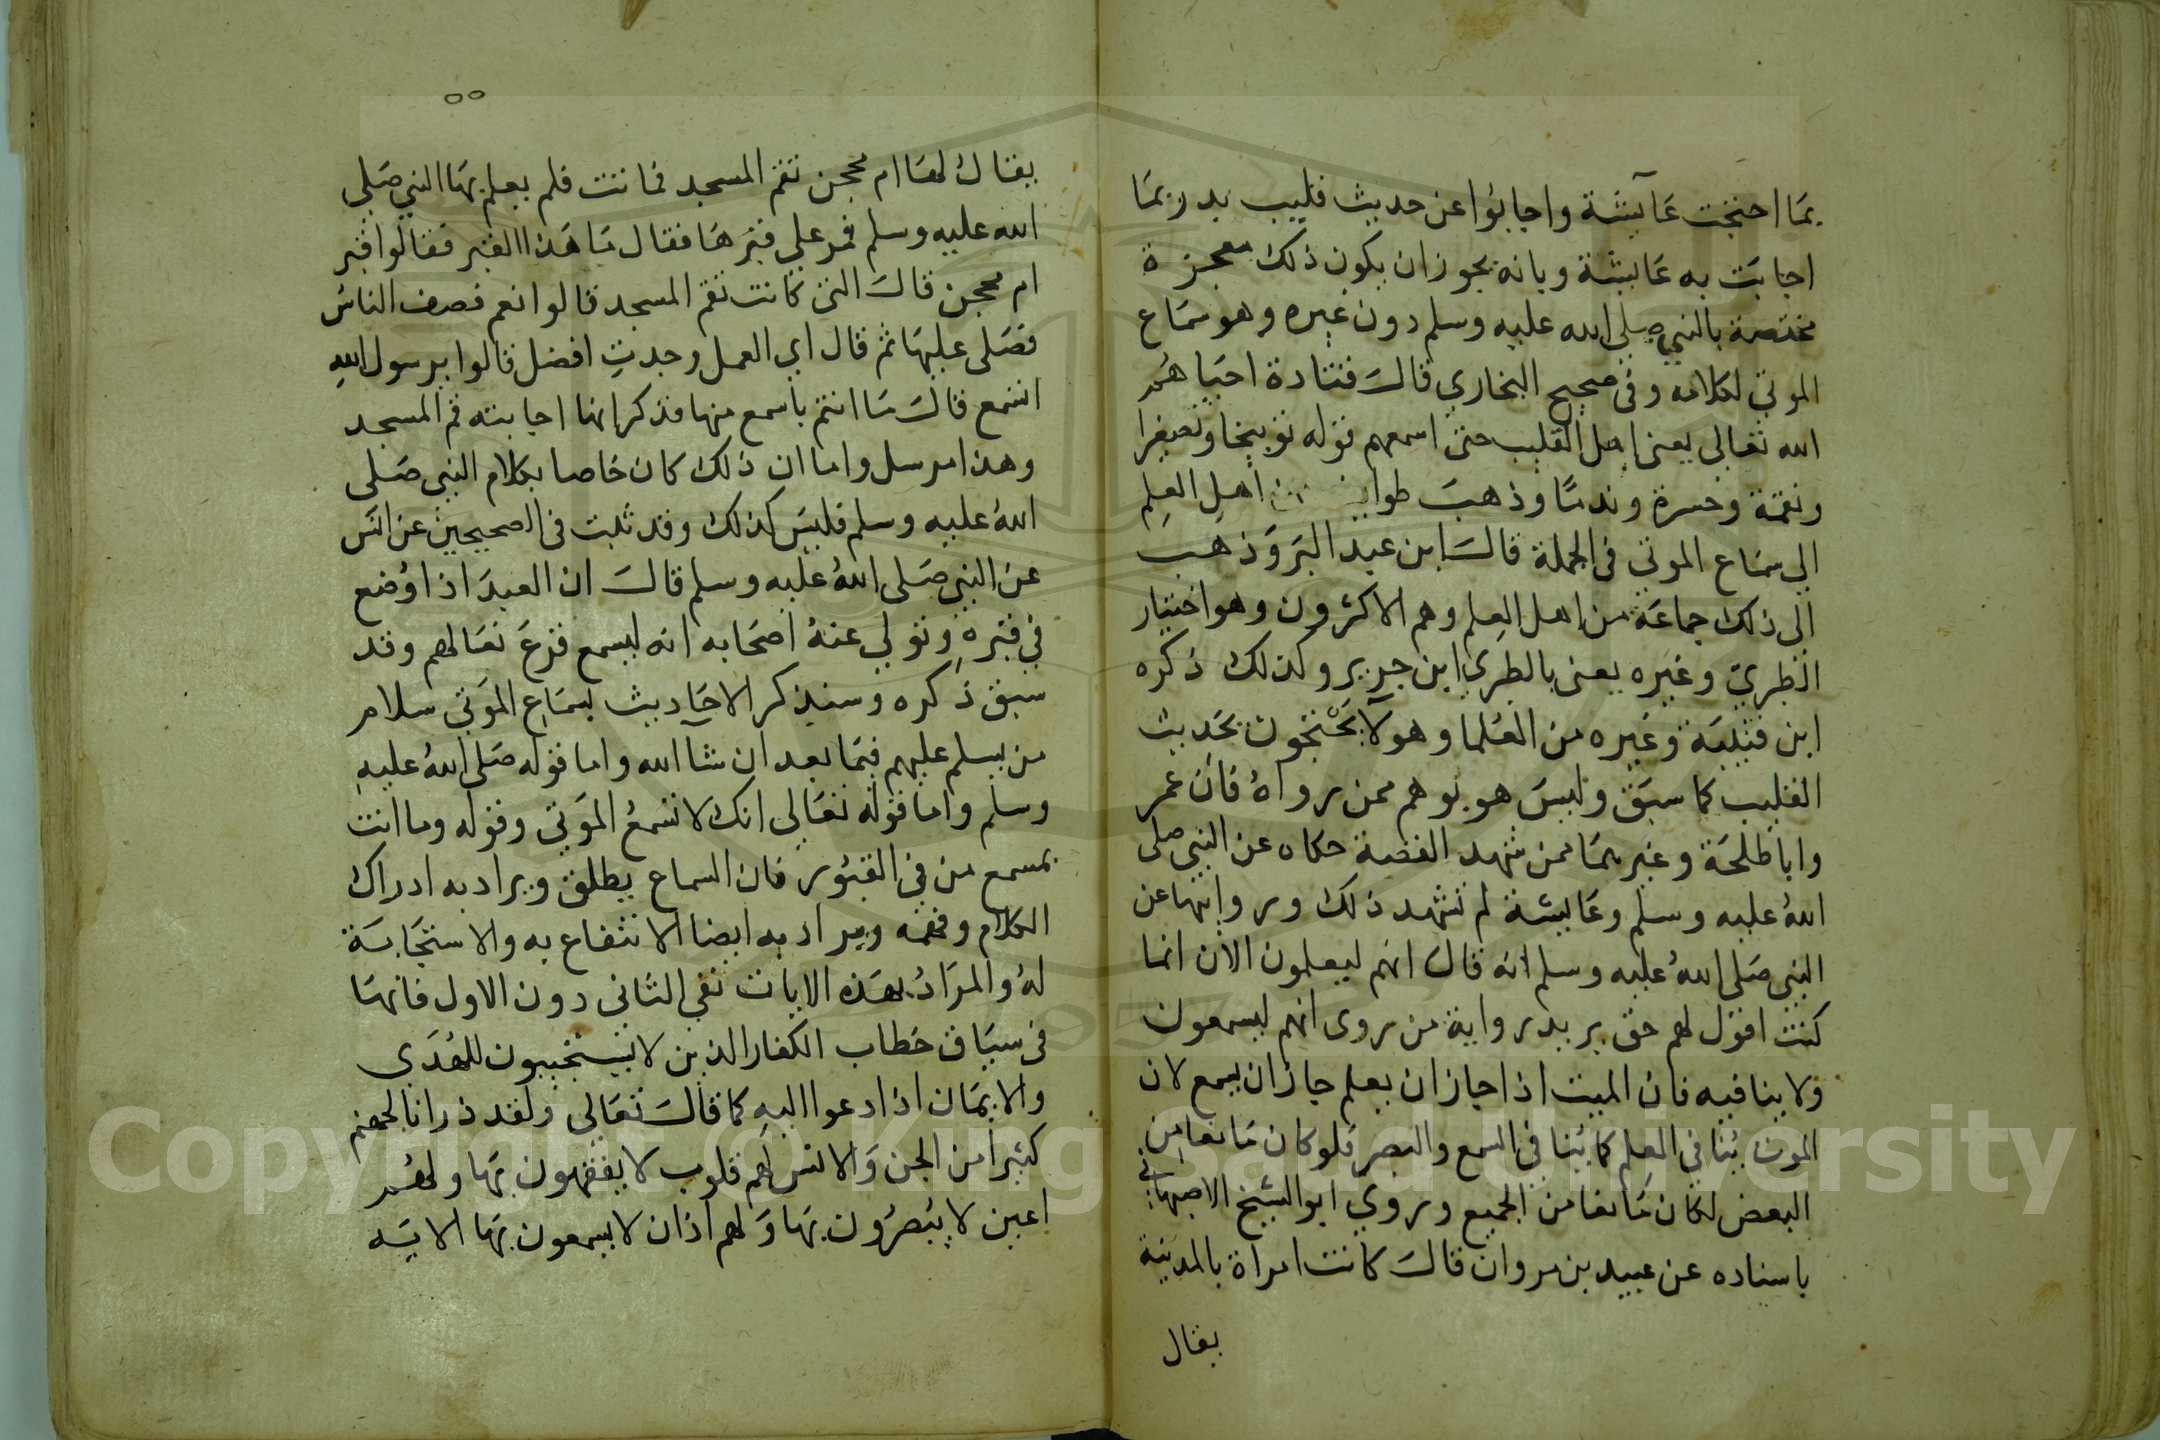 بما احتجت عايشة واجابوا عن حديث قليب بدر بما
اجابت به عايشة وبانه يجوز ان يكون ذلك معجزة
مختصة بالنبي صلى الله عليه وسلم دون غيره وهو سماع
الموتى لكلامه وفي صحيح البخاري قال قتادة احياهم
الله تعالى يعني اهل القليب حتى اسمعهم قوله توبيخا وتصغيرا
ونقمة وحسرة وندما وذهب طوايف من اهل العلم
الى سماع الموتى في الجملة قال ابن عبد البر وذهب
الى ذلك جماعة من اهل العلم وهم الاكثرون وهو اختيار
الطبري وغيره يعني بالطبري ابن جرير وكذلك ذكره
ابن قتيبة وغيره من العلما وهولا يحتجون بحديث
القليب كما سبق وليس هو بوهم ممن رواه فان عمر
وابا طلحة وغيرهما ممن شهد القصة حكاه عن النبي صلى
الله عليه وسلم وعايشة لم تشهد ذلك وروايتها عن
النبي صلى الله عليه وسلم انه قال انهم ليعلمون الان انما
كنت اقول لهم حق يريد رواية من روى انهم ليسمعون
ولا ينافيه فان الميت اذا جاز ان يعلم جاز ان يسمع لان
الموت ينافي العلم كما ينافي السمع والبصر فلو كان مانعا من
البعض لكان مانعا من الجميع وروي ابو الشيخ الاصبهاني
باسناده عن عبيد بن مروان قال كانت امراة بالمدينة
يقال
٥٥
يقال لها ام محجن تقم المسجد فماتت فلم يعلم بها النبي صلى
الله عليه وسلم فمر على قبرها فقال ما هذا القبر فقالوا قبر
ام محجن قال التي كانت تقم المسجد قالوا نعم فصف الناس
فصلى عليها ثم قال اي العمل وجدت افضل قالوا يرسول الله
اتسمع قال ما انتم باسمع منها فذكر انها اجابته قم المسجد
وهذا مرسل واما ان ذلك كان خاصا بكلام النبي صلى
الله عليه وسلم فليس كذلك وقد ثبت في الصحيحين عن انس
عن النبي صلى الله عليه وسلم قال ان العبد اذا وضع
في قبره وتولي عنه اصحابه انه ليسمع قرع نعالهم وقد
سبق ذكره وسنذكر الاحاديث بسماع الموتى سلام
من يسلم عليهم فيما بعد ان شا الله واما قوله صلى الله عليه
وسلم واما قوله تعالى انك لا تسمع الموتى وقوله وما انت
بمسمع من في القبور فان السماع يطلق ويراد به ادراك
الكلام وفهمه ويراد به ايضا الانتفاع به والاستجابة
له والمراد بهذه الايات نفي الثاني دون الاول فانها
في سياق خطاب الكفار الذين لا يستجيبون للهدى
والايمان اذا دعوا اليه كما قال تعالى ولقد ذرانا لجهنم
كثيرا من الجن والانس لهم قلوب لا يفقهون بها ولهم
اعين لا يبصرون بها ولهم اذان لا يسمعون بها الاية
Copyright © King Saud University